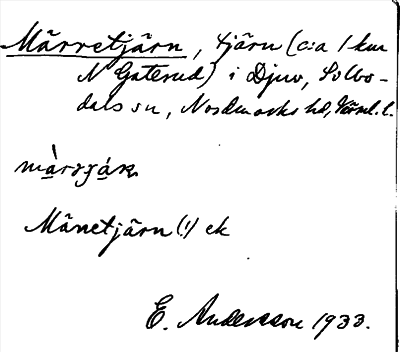 Märretjärn, tjärn (c:a 1 km
N Gaterud) i Djuv, Silbo-
dals sn, Nordmarks hd, Värml. l.
Mänetjärn (!) ek
E. Andersson 1933.